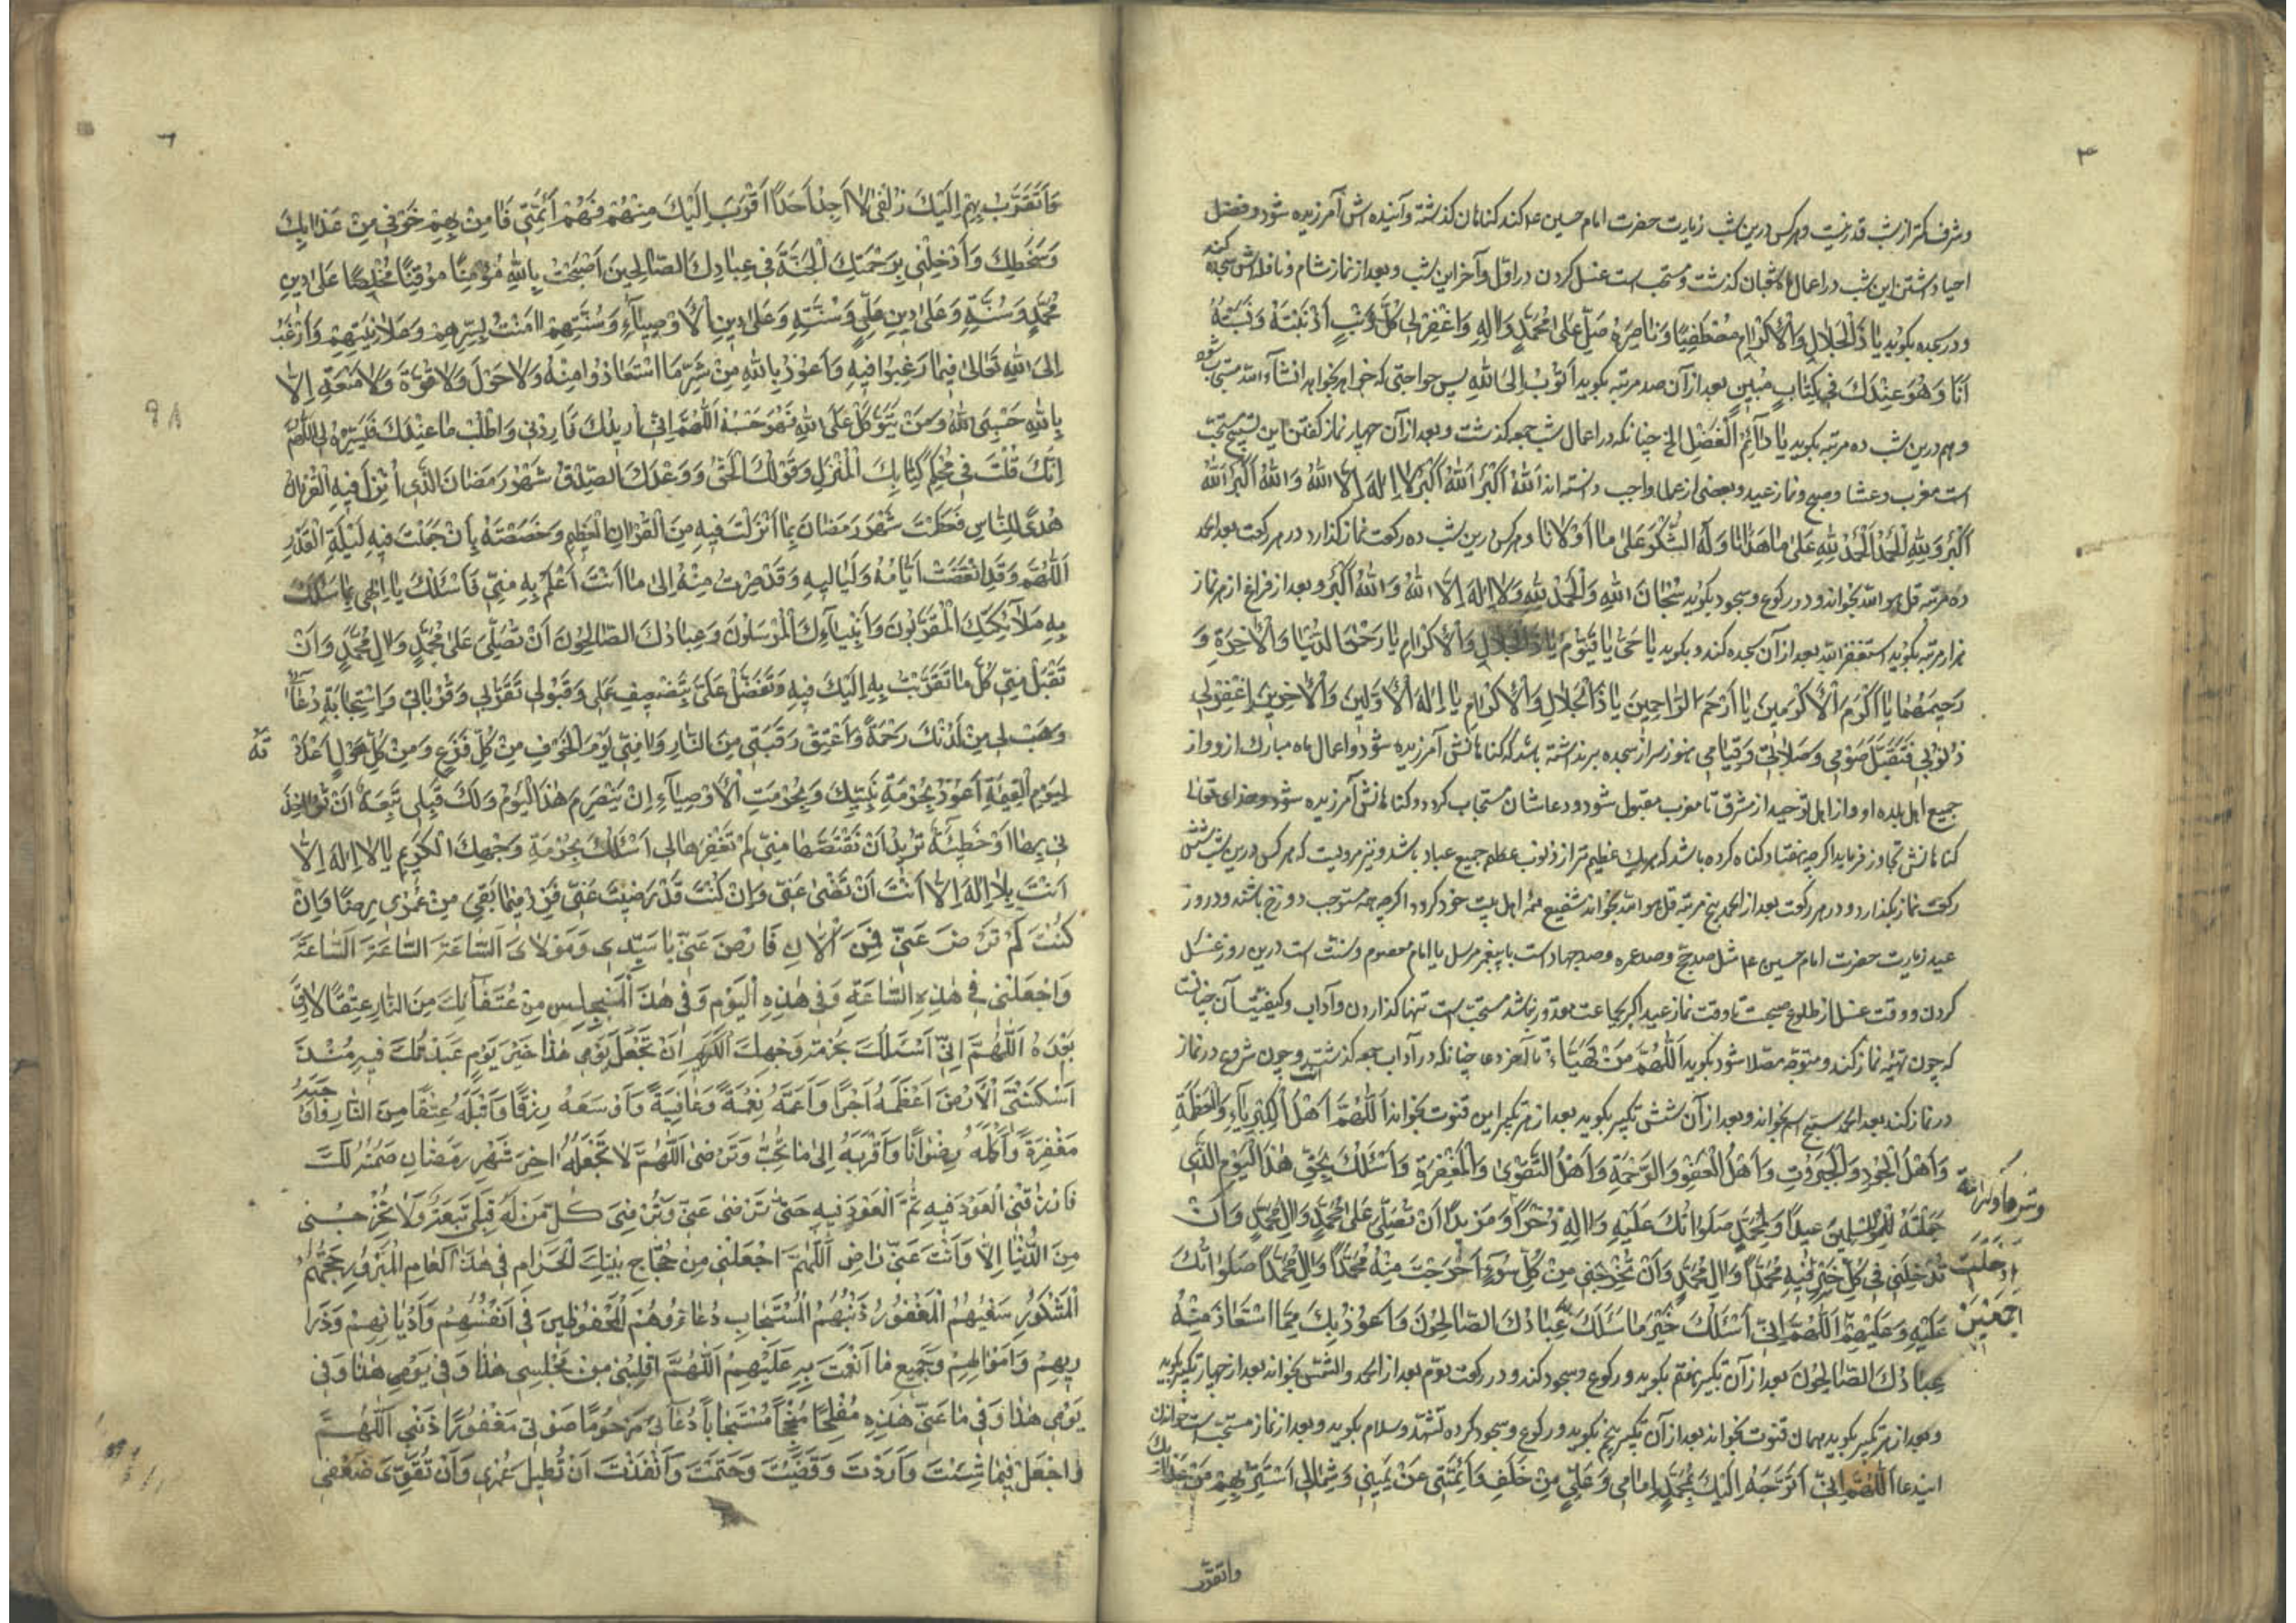 ۳
وشرف کمتر از شب قدر نیست و هرکس درین شب زیارت حضرت امام حسین ع کند کناهان کذشته و آینده اش آمرزیده شود و فضل
احیا داشتن این شب در اعمال شعبان کذشت و مستحب است غسل کردن در اول و آخر این شب و بعد از نماز شام و نافلاش سجده کند
و در سجده بکوید یَا ذَا الْجَلَالِ وَالْاِکْرَامِ مُصْطَفِیًا وَنَاصِرَهُ صَلِّ عَلٰی مُحَمَّدٍ وَاٰلِهِ وَاغْفِرْ لِی کُلَّ ذَنْبٍ اَذْنَبْتُهُ وَنَسِیتُهُ
اَنَا وَهُوَ عِنْدَكَ فِی کِتَابٍ مُبِینٍ بعد از آن صد مرتبه بکوید اَتُوبُ اِلَی اللهِ پس حواجتی که خواهد بخواهد انشآء الله مستجاب شود
و هم درین شب ده مرتبه بکوید یَا دَآئِمَ الْفَضْلِ الخ چنانکه در اعمال شب جمعه کذشت و بعد از آن چهار نماز کفتن این تسبیح مستحب
است مغرب و عشا و صبح و نماز عید و بعضی از علما واجب دانسته اند اَللهُ اَکْبَرُ اَللهُ اَکْبَرُ لَا اِلٰهَ اِلَّا اللهُ وَاللهُ اَکْبَرُ اَللهُ
اَکْبَرُ وَلِلّٰهِ الْحَمْدُ اَلْحَمْدُ لِلّٰهِ عَلٰی مَا هَدَانَا وَلَهُ الشُّکْرُ عَلٰی مَا اَوْلَانَا و هرکس درین شب ده رکعت نماز کذارد در هر رکعت بعد الحمد
ده مرتبه قل هو الله بخواند و در رکوع و سجود بکوید سُبْحَانَ اللهِ وَالْحَمْدُ لِلّٰهِ وَلَا اِلٰهَ اِلَّا اللهُ وَاللهُ اَکْبَرُ و بعد از فراغ از هر نماز
هزار مرتبه بکوید استغفر الله بعد از آن سجده کند و بکوید یَا حَیُّ یَا قَیُّومُ یَا ذَا الْجَلَالِ وَالْاِکْرَامِ یَا رَحْمٰنَ الدُّنْیَا وَالْاٰخِرَةِ وَ
رَحِیمَهُمَا یَا اَکْرَمَ الْاَکْرَمِینَ یَا اَرْحَمَ الرَّاحِمِینَ یَا ذَا الْجَلَالِ وَالْاِکْرَامِ یَا اِلٰهَ الْاَوَّلِینَ وَالْاٰخِرِینَ اِغْفِرْ لِی
ذُنُوبِی فَتَقَبَّلْ صَوْمِی وَصَلَاتِی وَقِیَامِی هنوز سر از سجده برنداشته باشد که کناهانش آمرزیده شود و اعمال ماه مبارك از و و از
جمیع اهل بلده او و از اهل توحید از مشرق تا مغرب مقبول شود و دعاشان مستجاب کردد و کناهانش آمرزیده شود و خدای تعالی
کناهانش تجاوز فرماید اکرچه هفتاد کناه کرده باشد که هریك عظیم تر از ذنوب عظم جمیع عباد باشد و نیز مرویست که هرکس درین شب شش
رکعت نماز بکذارد و در هر رکعت بعد از الحمد پنج مرتبه قل هو الله بخواند شفیع همه اهل بیت خود کردد اکرچه همه مستوجب دوزخ باشند و در روز
عید زیارت حضرت امام حسین ع مثل صد حج و صد عمره و صد جهاد است با پیغمبر مرسل یا امام معصوم و سنت است درین روز غسل
کردن و وقت غسل از طلوع صبحست تا وقت نماز عید اکر بجماعت مقدور نباشد مستحب است تنها کذاردن و آداب و کیفیت آن چنانست
که چون تهیه نماز کند و متوجه مصلا شود بکوید اَللّٰهُمَّ مَنْ تَهَیَّاءَ تا آخر دعا چنانکه در آداب جمعه کذشت و چون شروع در نماز
در نماز کند بعد الحمد سبح اسم بخواند و بعد از آن شش تکبیر بکوید بعد از هر تکبیر این قنوت بخواند اَللّٰهُمَّ اَهْلَ الْکِبْرِیَآءِ وَالْعَظَمَةِ
وَاَهْلَ الْجُودِ وَالْجَبَرُوتِ وَاَهْلَ الْعَفْوِ وَالرَّحْمَةِ وَاَهْلَ التَّقْوٰی وَالْمَغْفِرَةِ وَاَسْئَلُكَ بِحَقِّ هٰذَا الْیَوْمِ الَّذِی
جَعَلْتَهُ لِلْمُسْلِمِینَ عِیدًا وَلِمُحَمَّدٍ صَلَوَاتُكَ عَلَیْهِ وَاٰلِهِ ذُخْرًا وَمَزِیدًا اَنْ تُصَلِّیَ عَلٰی مُحَمَّدٍ وَاٰلِ مُحَمَّدٍ وَاَنْ
تُدْخِلَنِی فِی کُلِّ خَیْرٍ اَدْخَلْتَ فِیهِ مُحَمَّدًا وَاٰلَ مُحَمَّدٍ وَاَنْ تُخْرِجَنِی مِنْ کُلِّ سُوٓءٍ اَخْرَجْتَ مِنْهُ مُحَمَّدًا وَاٰلَ مُحَمَّدًا صَلَوَاتُكَ
عَلَیْهِ وَعَلَیْهِمْ اَجْمَعِینَ اَللّٰهُمَّ اِنِّی اَسْئَلُكَ خَیْرَ مَا سَئَلَكَ عِبَادُكَ الصَّالِحُونَ وَاَعُوذُ بِكَ مِمَّا اسْتَعَاذَ مِنْهُ
عِبَادُكَ الصَّالِحُونَ بعد از آن تکبیر هفتم بکوید و رکوع و سجود کند و در رکعت دوم بعد از الحمد و الشمس بخواند بعد از چهار تکبیر بکوید
و بعد از هر تکبیر بکوید همان قنوت بخواند بعد از آن تکبیر پنجم بکوید و رکوع و سجود کرده تشهد و سلام بکوید و بعد از نماز مستحب است خواندن
ایندعا اَللّٰهُمَّ اِنِّی اَتَوَجَّهُ اِلَیْكَ بِمُحَمَّدٍ اِمَامِی وَعَلِیٍّ مِنْ خَلْفِی وَاَئِمَّتِی عَنْ یَمِینِی وَشِمَالِی اَسْتَتِرُ بِهِمْ مِنْ عَذَابِكَ
واتقرّب
وَاَتَقَرَّبُ بِهِمْ اِلَیْكَ زُلْفٰی لَا اَجِدُ اَحَدًا اَقْرَبَ اِلَیْكَ مِنْهُمْ فَهُمْ اَئِمَّتِی فَاٰمِنْ بِهِمْ خَوْفِی مِنْ عَذَابِكَ
وَسَخَطِكَ وَاَدْخِلْنِی بِرَحْمَتِكَ الْجَنَّةَ فِی عِبَادِكَ الصَّالِحِینَ اَصْبَحْتُ بِاللهِ مُؤْمِنًا مُوقِنًا مُخْلِصًا عَلٰی دِینِ
مُحَمَّدٍ وَسُنَّتِهِ وَعَلٰی دِینِ عَلِیٍّ وَسُنَّتِهِ وَعَلٰی دِینِ الْاَوْصِیَآءِ وَسُنَّتِهِمْ اٰمَنْتُ بِسِرِّهِمْ وَعَلَانِیَتِهِمْ وَاَرْغَبُ
اِلَی اللهِ تَعَالٰی فِیمَا رَغِبُوا فِیهِ وَاَعُوذُ بِاللهِ مِنْ شَرِّ مَا اسْتَعَاذُوا مِنْهُ وَلَا حَوْلَ وَلَا قُوَّةَ وَلَا مَنَعَةَ اِلَّا
بِاللهِ حَسْبِیَ اللهُ وَمَنْ یَتَوَکَّلْ عَلَی اللهِ فَهُوَ حَسْبُهُ اَللّٰهُمَّ اِنِّی اُرِیدُكَ فَاَرِدْنِی وَاَطْلُبُ مَا عِنْدَكَ فَیَسِّرْهُ لِی اَللّٰهُمَّ
اِنَّكَ قُلْتَ فِی مُحْکَمِ کِتَابِكَ الْمُنْزَلِ وَقَوْلُكَ الْحَقُّ وَوَعْدُكَ الصِّدْقُ شَهْرُ رَمَضَانَ الَّذِی اُنْزِلَ فِیهِ الْقُرْاٰنُ
هُدًی لِلنَّاسِ فَعَظَّمْتَ شَهْرَ رَمَضَانَ بِمَا اَنْزَلْتَ فِیهِ مِنَ الْقُرْاٰنِ الْعَظِیمِ وَخَصَصْتَهُ بِاَنْ جَعَلْتَ فِیهِ لَیْلَةَ الْقَدْرِ
اَللّٰهُمَّ وَقَدِ انْقَضَتْ اَیَّامُهُ وَلَیَالِیهِ وَقَدْ صِرْتُ مِنْهُ اِلٰی مَا اَنْتَ اَعْلَمُ بِهِ مِنِّی فَاَسْئَلُكَ یَا اِلٰهِی بِمَا سَئَلَكَ
بِهِ مَلَآئِکَتُكَ الْمُقَرَّبُونَ وَاَنْبِیَآءُكَ الْمُرْسَلُونَ وَعِبَادُكَ الصَّالِحُونَ اَنْ تُصَلِّیَ عَلٰی مُحَمَّدٍ وَاٰلِ مُحَمَّدٍ وَاَنْ
تَقْبَلَ مِنِّی کُلَّ مَا تَقَرَّبْتُ بِهِ اِلَیْكَ فِیهِ وَتَفَضَّلْ عَلَیَّ بِتَضْعِیفِ عَمَلِی وَقَبُولِ تَقَرُّبِی وَقُرُبَاتِی وَاسْتِجَابَةِ دُعَآئِی
وَهَبْ لِی مِنْ لَدُنْكَ رَحْمَةً وَاَعْتِقْ رَقَبَتِی مِنَ النَّارِ وَاٰمِنِّی یَوْمَ الْخَوْفِ مِنْ کُلِّ فَزَعٍ وَمِنْ کُلِّ هَوْلٍ اَعْدَدْتَهُ
لِیَوْمِ الْقِیٰمَةِ اَعُوذُ بِحُرْمَةِ نَبِیِّكَ وَبِحُرْمَةِ الْاَوْصِیَآءِ اِنْ یَنْصَرِمَ هٰذَا الْیَوْمُ وَلَكَ قِبَلِی تَبِعَةٌ اَنْ تُؤَاخِذَ
نِی بِهَا اَوْ خَطِیئَةٌ تُرِیدُ اَنْ تَقْتَصَّهَا مِنِّی لَمْ تَغْفِرْهَا لِی اَسْئَلُكَ بِحُرْمَةِ وَجْهِكَ الْکَرِیمِ یَا لَا اِلٰهَ اِلَّا
اَنْتَ بِلَا اِلٰهَ اِلَّا اَنْتَ اَنْ تَرْضٰی عَنِّی وَاِنْ کُنْتَ قَدْ رَضِیتَ عَنِّی فَزِدْ فِیمَا بَقِیَ مِنْ عُمْرِی رِضًا وَاِنْ
کُنْتَ لَمْ تَرْضَ عَنِّی فَمِنَ الْاٰنِ فَارْضَ عَنِّی یَا سَیِّدِی وَمَوْلَایَ اَلسَّاعَةَ اَلسَّاعَةَ اَلسَّاعَةَ
وَاجْعَلْنِی فِی هٰذِهِ السَّاعَةِ وَفِی هٰذِهِ الْیَوْمِ وَفِی هٰذَا الْمَجْلِسِ مِنْ عُتَقَآئِكَ مِنَ النَّارِ عِتْقًا لَا رِقَّ
بَعْدَهُ اَللّٰهُمَّ اِنِّی اَسْئَلُكَ بِحُرْمَةِ وَجْهِكَ الْکَرِیمِ اَنْ تَجْعَلَ یَوْمِی هٰذَا خَیْرَ یَوْمٍ عَبَدْتُكَ فِیهِ مُنْذُ
اَسْکَنْتَنِی الْاَرْضَ اَعْظَمَهُ اَجْرًا وَاَعَمَّهُ نِعْمَةً وَعَافِیَةً وَاَوْسَعَهُ رِزْقًا وَاَبْتَلَهُ عِتْقًا مِنَ النَّارِ وَاَوْجَبَهُ
مَغْفِرَةً وَاَکْمَلَهُ رِضْوَانًا وَاَقْرَبَهُ اِلٰی مَا تُحِبُّ وَتَرْضٰی اَللّٰهُمَّ لَا تَجْعَلْهُ اٰخِرَ شَهْرِ رَمَضَانَ صُمْتُهُ لَكَ
فَارْزُقْنِی الْعَوْدَ فِیهِ ثُمَّ الْعَوْدَ فِیهِ حَتّٰی تَرْضٰی عَنِّی وَتُرْضِیَ کُلَّ مَنْ لَهُ قِبَلِی تَبِعَةٌ وَلَا تُخْرِجْنِی
مِنَ الدُّنْیَا اِلَّا وَاَنْتَ عَنِّی رَاضٍ اَللّٰهُمَّ اجْعَلْنِی مِنْ حُجَّاجِ بَیْتِكَ الْحَرَامِ فِی هٰذَا الْعَامِ الْمَبْرُورِ حَجُّهُمْ
الْمَشْکُورِ سَعْیُهُمُ الْمَغْفُورِ ذَنْبُهُمُ الْمُسْتَجَابِ دُعَاؤُهُمُ الْمَحْفُوظِینَ فِی اَنْفُسِهِمْ وَاَدْیَانِهِمْ وَذَرَا
رِیهِمْ وَاَمْوَالِهِمْ وَجَمِیعِ مَا اَنْعَمْتَ بِهِ عَلَیْهِمْ اَللّٰهُمَّ اقْلِبْنِی مِنْ مَجْلِسِی هٰذَا وَفِی یَوْمِی هٰذَا وَفِی
یَوْمِی هٰذَا وَفِی سَاعَتِی هٰذِهِ مُفْلِحًا مُنْجِحًا مُسْتَجَابًا دُعَائِی مَرْحُومًا صَوْتِی مَغْفُورًا ذَنْبِی اَللّٰهُمَّ
وَاجْعَلْ فِیمَا شِئْتَ وَاَرَدْتَ وَقَضَیْتَ وَحَتَمْتَ وَاَنْفَذْتَ اَنْ تُطِیلَ عُمْرِی وَاَنْ تُقَوِّیَ ضَعْفِی